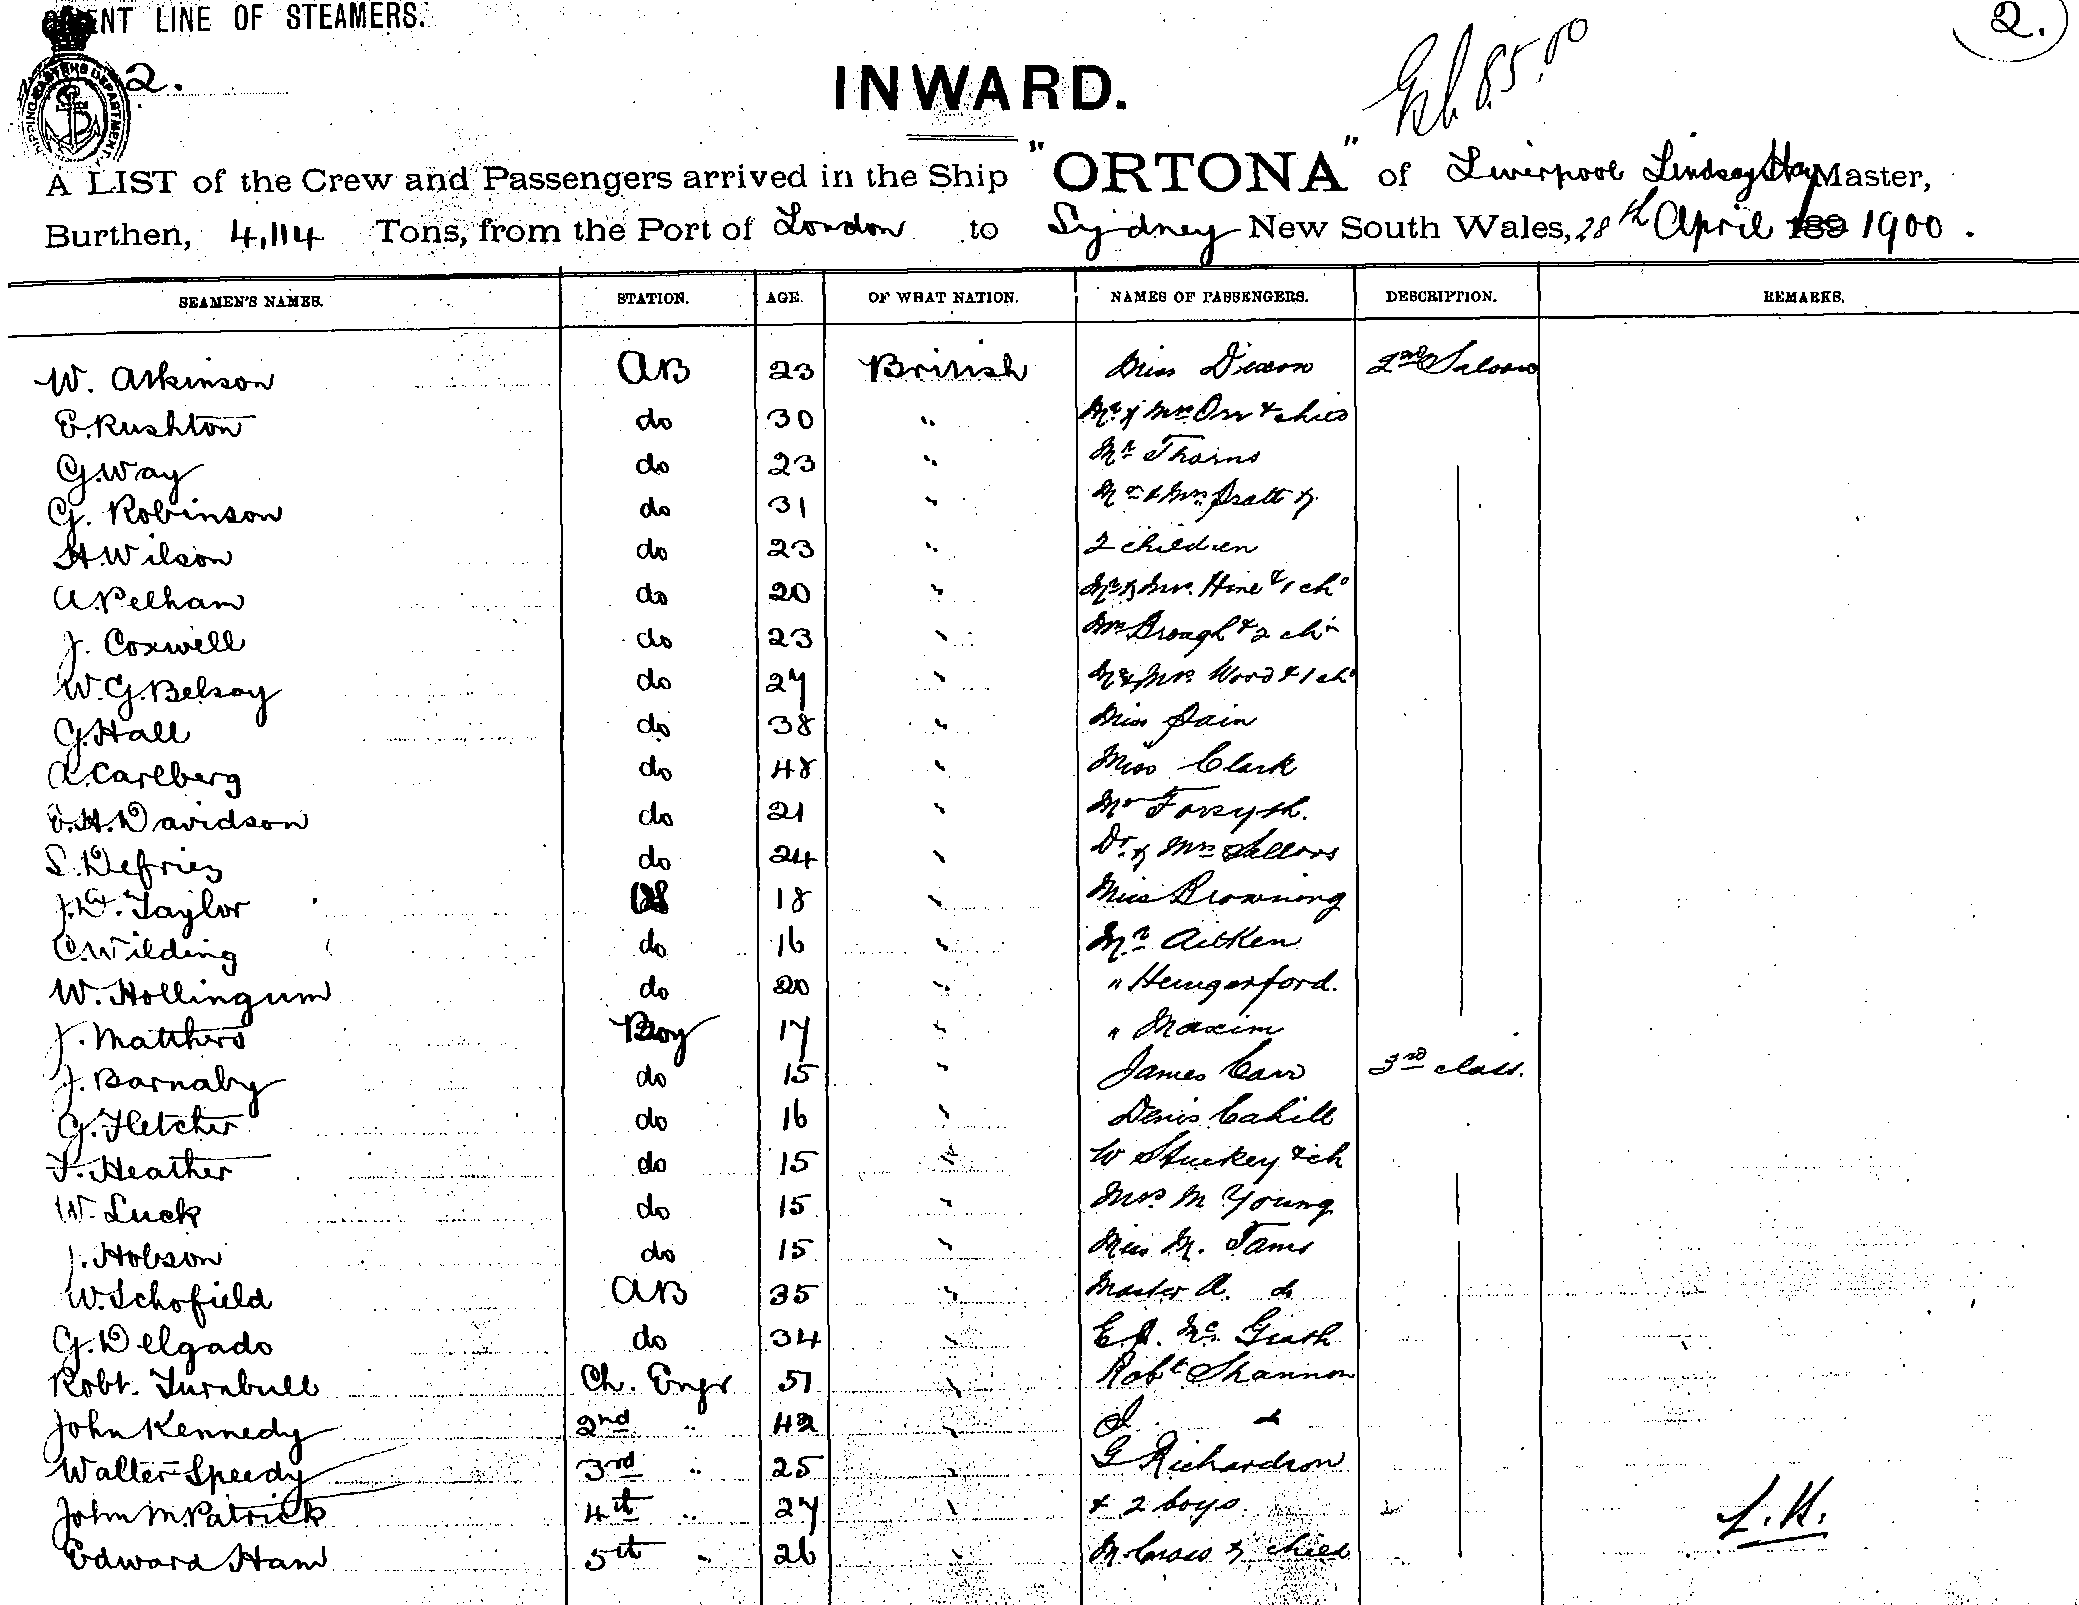 LINE OF STEAMERS.
2.
2.
INWARD.
85.00
A LIST of the Crew and Passengers arrived in the Ship "ORTONA" of Liverpool Lindsay Master,
Burthen, 4,114 Tons, from the Port of London to Sydney New South Wales, 28th April 189 1900.
SEAMEN'S NAMES. STATION. AGE. OF WHAT NATION. NAMES OF PASSENGERS. DESCRIPTION. REMARKS.
W. Atkinson AB 23 British Miss Dixon 2nd Saloon
E. Rushton do 30 " Mr & Mrs Orr & child
G. Way do 23 " Mr Thorns
G. Robinson do 31 " Mr & Mrs Pratt &
H. Wilson do 23 " 2 children
A. Pelham do 20 " Mr & Mrs. Hine & 1 chd
J. Coxwell do 23 " Mrs Brough & 2 chn
W. G. Belsay do 27 " Mr & Mrs. Wood & 1 chd
G. Hall do 38 " Miss Pain
Carlberg do 48 " Miss Clark
E. H. Davidson do 21 " Mr Forsyth.
S. Defriez do 24 " Dr. & Mrs Sellors
Taylor OS 18 " Miss Browning
C. Wilding do 16 " Mr Aitken
W. Hollingum do 20 " " Hemgerford.
J. Matthews Boy 17 " " Maxim
J. Barnaby do 15 " James Carr 3rd class.
G. Fletcher do 16 " Denis Cahill
F. Heather do 15 " W Stuckey & ch
W. Luck do 15 " Mrs. M Young
J. Hobson do 15 " Miss M. Tams
W. Schofield AB 35 " Master A. do
G. Delgado do 34 " Mc Grath
Robt. Turnbull Ch. Engr 51 " Robt Shannon
John Kennedy 2nd " 42 " J. do
Walter Speedy 3rd " 25 " G Richardson
John McPatrick 4th " 27 " & 2 boys
Edward Ham 5th " 26 " M. Cross & child
L.H.